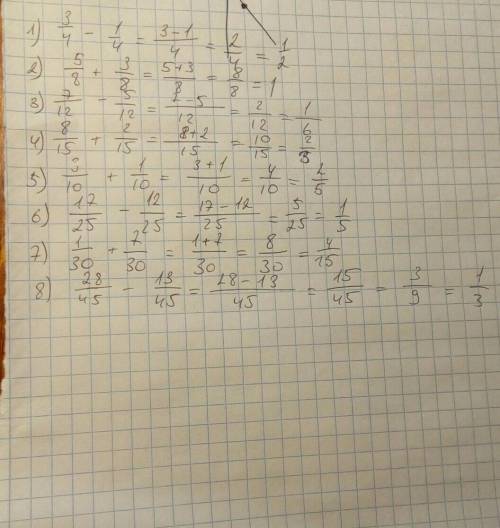 1) 3/4 - 1/4 = 3-1/4 = 2/4 = 1/2
2) 5/8 + 3/8 = 5+3/8 = 8/8 = 1
3) 7/12 - 5/12 = 7-5/12 = 2/12 = 1/6
4) 8/15 + 2/15 = 8+2/15 = 10/15 = 2/3
5) 3/10 + 1/10 = 3+1/10 = 4/10 = 2/5
6) 17/25 - 12/25 = 17-12/25 = 5/25 = 1/5
7) 1/30 + 7/30 = 1+7/30 = 8/30 = 4/15
8) 28/45 - 13/45 = 28-13/45 = 15/45 = 3/9 = 1/3